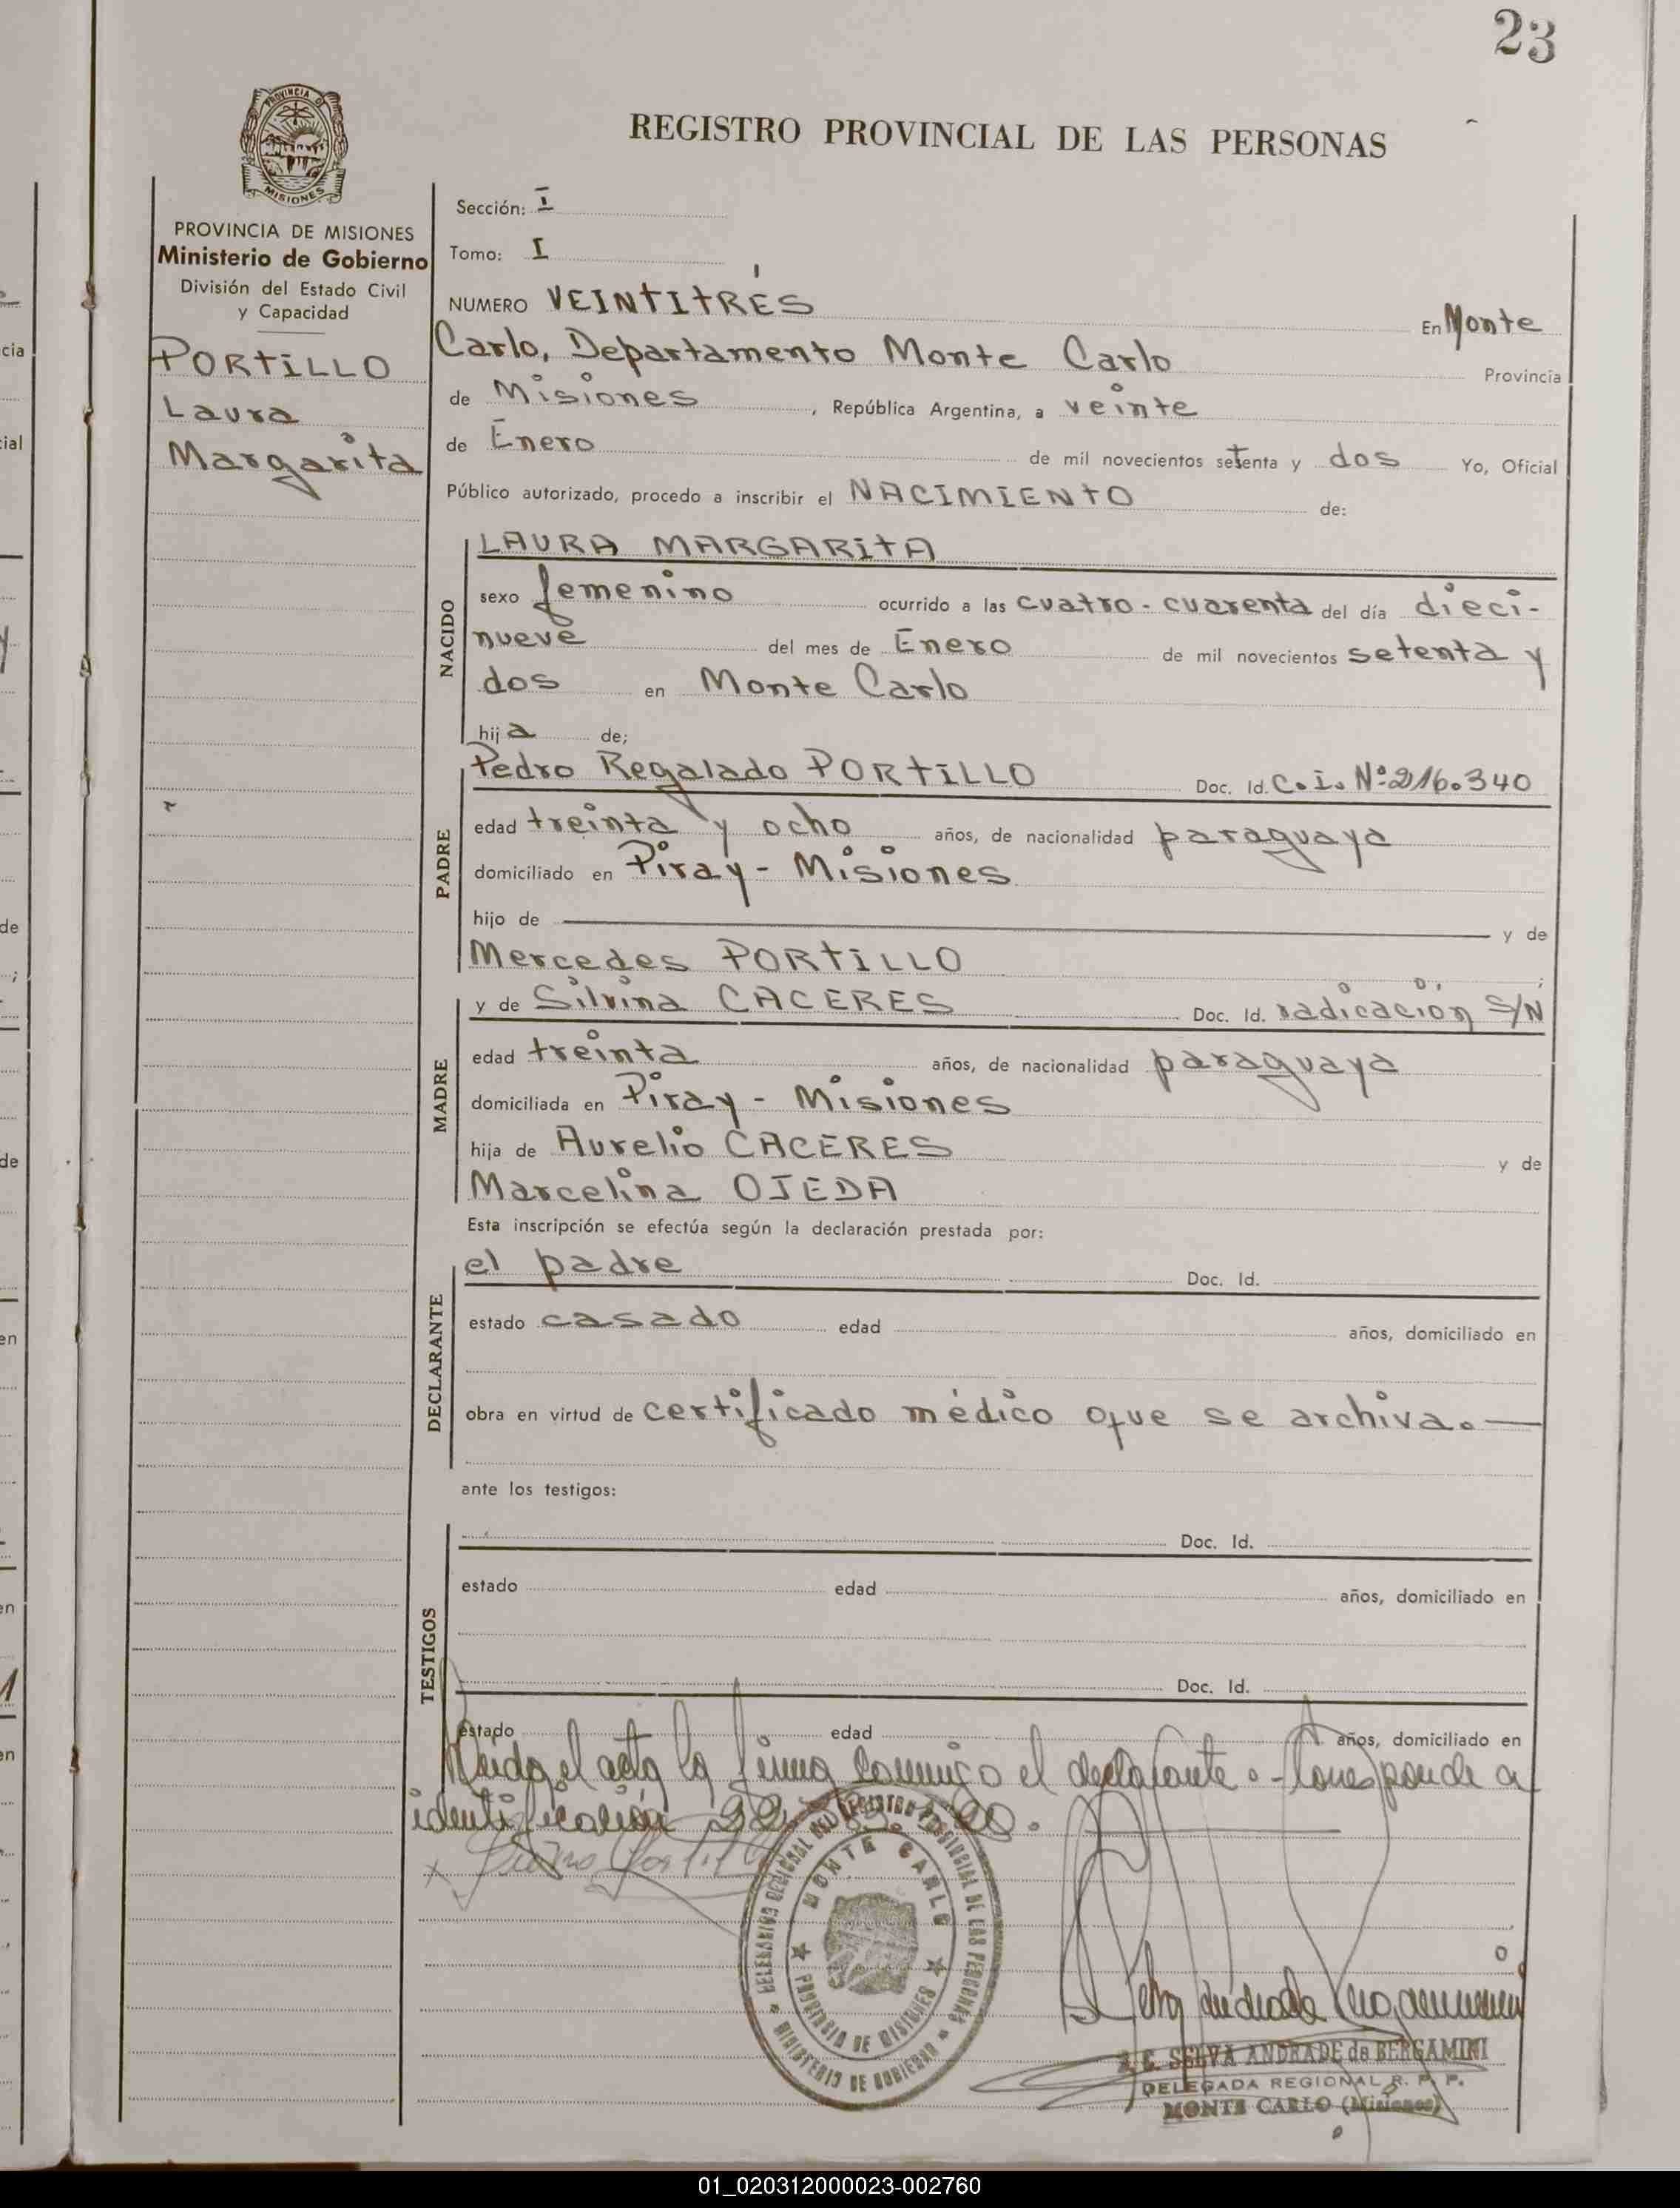 23
REGISTRO PROVINCIAL DE LAS PERSONAS
PROVINCIA DE MISIONES
Ministerio de Gobierno
División del Estado Civil
y Capacidad
PORTILLO
Laura
Margarita
Sección: I
Tomo: I
NUMERO VEINTITRÉS En Monte
Carlo, Departamento Monte Carlo Provincia
de Misiones, República Argentina, a veinte
de Enero de mil novecientos setenta y dos Yo, Oficial
Público autorizado, procedo a inscribir el NACIMIENTO de:
NACIDO
LAURA MARGARITA
sexo femenino ocurrido a las cuatro-cuarenta del día dieci-
nueve del mes de Enero de mil novecientos setenta y
dos en Monte Carlo
hija de;
PADRE
Pedro Regalado PORTILLO Doc. Id. C.I. Nº 216.340
edad treinta y ocho años, de nacionalidad paraguaya
domiciliado en Piray - Misiones
hijo de y de
Mercedes PORTILLO ;
MADRE
y de Silvina CACERES Doc. Id. radicación S/N
edad treinta años, de nacionalidad paraguaya
domiciliada en Piray - Misiones
hija de Aurelio CACERES y de
Marcelina OJEDA
Esta inscripción se efectúa según la declaración prestada por:
DECLARANTE
el padre Doc. Id.
estado casado edad años, domiciliado en
obra en virtud de certificado médico que se archiva.
ante los testigos:
TESTIGOS
Doc. Id.
estado edad años, domiciliado en
Doc. Id.
estado edad años, domiciliado en
Leida el acta la firma conmigo el declarante.- Corresponde a
identificación 22.
MONTE CARLO
PROVINCIA DE MISIONES
MINISTERIO DE GOBIERNO
SELVA ANDRADE de BERGAMINI
DELEGADA REGIONAL R. P. P.
MONTE CARLO (Misiones)
01_020312000023-002760